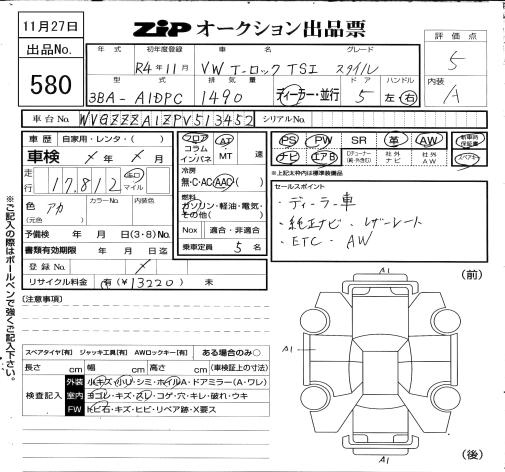 11月27日
ZiP オークション出品票
出品No.
580
年式 初年度登録 車名 グレード
R4年11月 VW T-ロック TSI スタイル
型式 排気量 ドア ハンドル
3BA-A1DPC 1490 ディーラー・並行 5 左・右
評価点
5
内装
A
車台No. WVGZZZA1ZPV513452 シリアルNo.
車歴 自家用・レンタ・( )
車検 年 月
走行 17,812 キロ マイル
色 アカ カラーNo. 内装色
(元色 )
予備検 年 月 日(3・8)No.
書類有効期限 年 月 日迄
登録No.
リサイクル料金 有(¥13220) 未
フロア コラム インパネ AT MT 速
冷房
無・C・AC・AAC・( )
燃料
ガソリン・軽油・電気・その他( )
Nox 適合・非適合
乗車定員 5 名
PS PW SR 革 AW 新車時保証書
ナビ エアB 社外ナビ 社外AW スペアキー
※上記太枠内は標準装備品
セールスポイント
・ディーラー車
・純正ナビ ・レザーシート
・ETC ・AW
※ご記入の際はボールペンで強くご記入下さい。
[注意事項]
スペアタイヤ[有] ジャッキ工具[有] AWロックキー[有] ある場合のみ○
長さ cm 幅 cm 高さ cm (車検証上の寸法)
検査記入
外装 小キズ・小リ・シミ・ホイルA・ドアミラー(A・ワレ)
室内 ヨゴレ・キズ・スレ・コゲ・穴・キレ・破れ・ウキ
FW トビ石・キズ・ヒビ・リペア跡・X要ス
(前)
A1
A1
A1
(後)